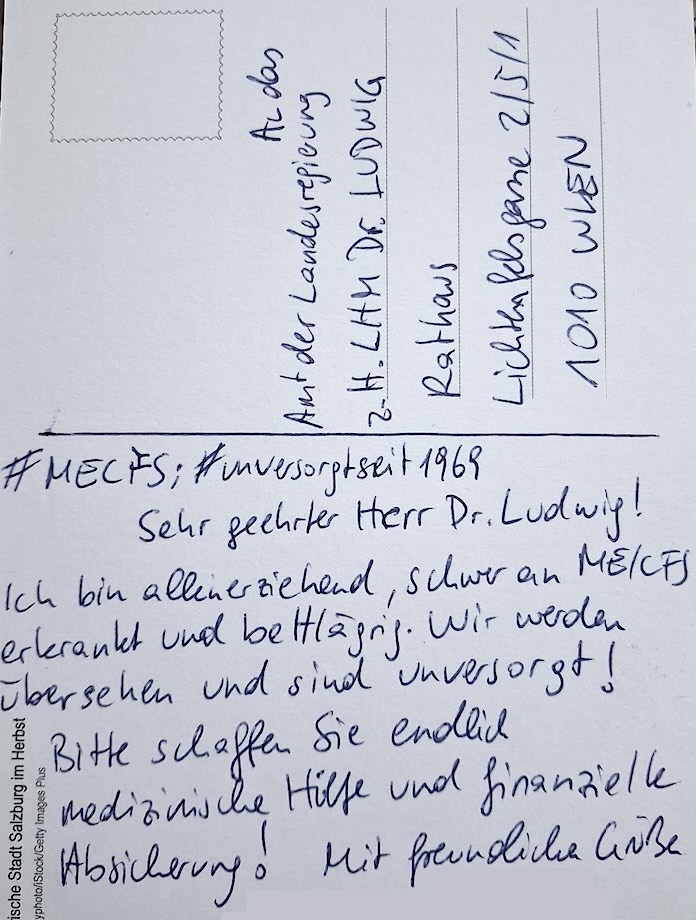 An das
Amt der Landesregierung
z.H. LHM Dr. LUDWIG
Rathaus
Lichtenfelsgasse 2/5/1
1010 WIEN
#MECFS; #unversorgtseit1969
Sehr geehrter Herr Dr. Ludwig!
Ich bin alleinerziehend, schwer an ME/CFS
erkrankt und bettlägrig. Wir werden
übersehen und sind unversorgt!
Bitte schaffen Sie endlich
medizinische Hilfe und finanzielle
Absicherung! Mit freundliche Grüße
rische Stadt Salzburg im Herbst
yphoto/iStock/Getty Images Plus